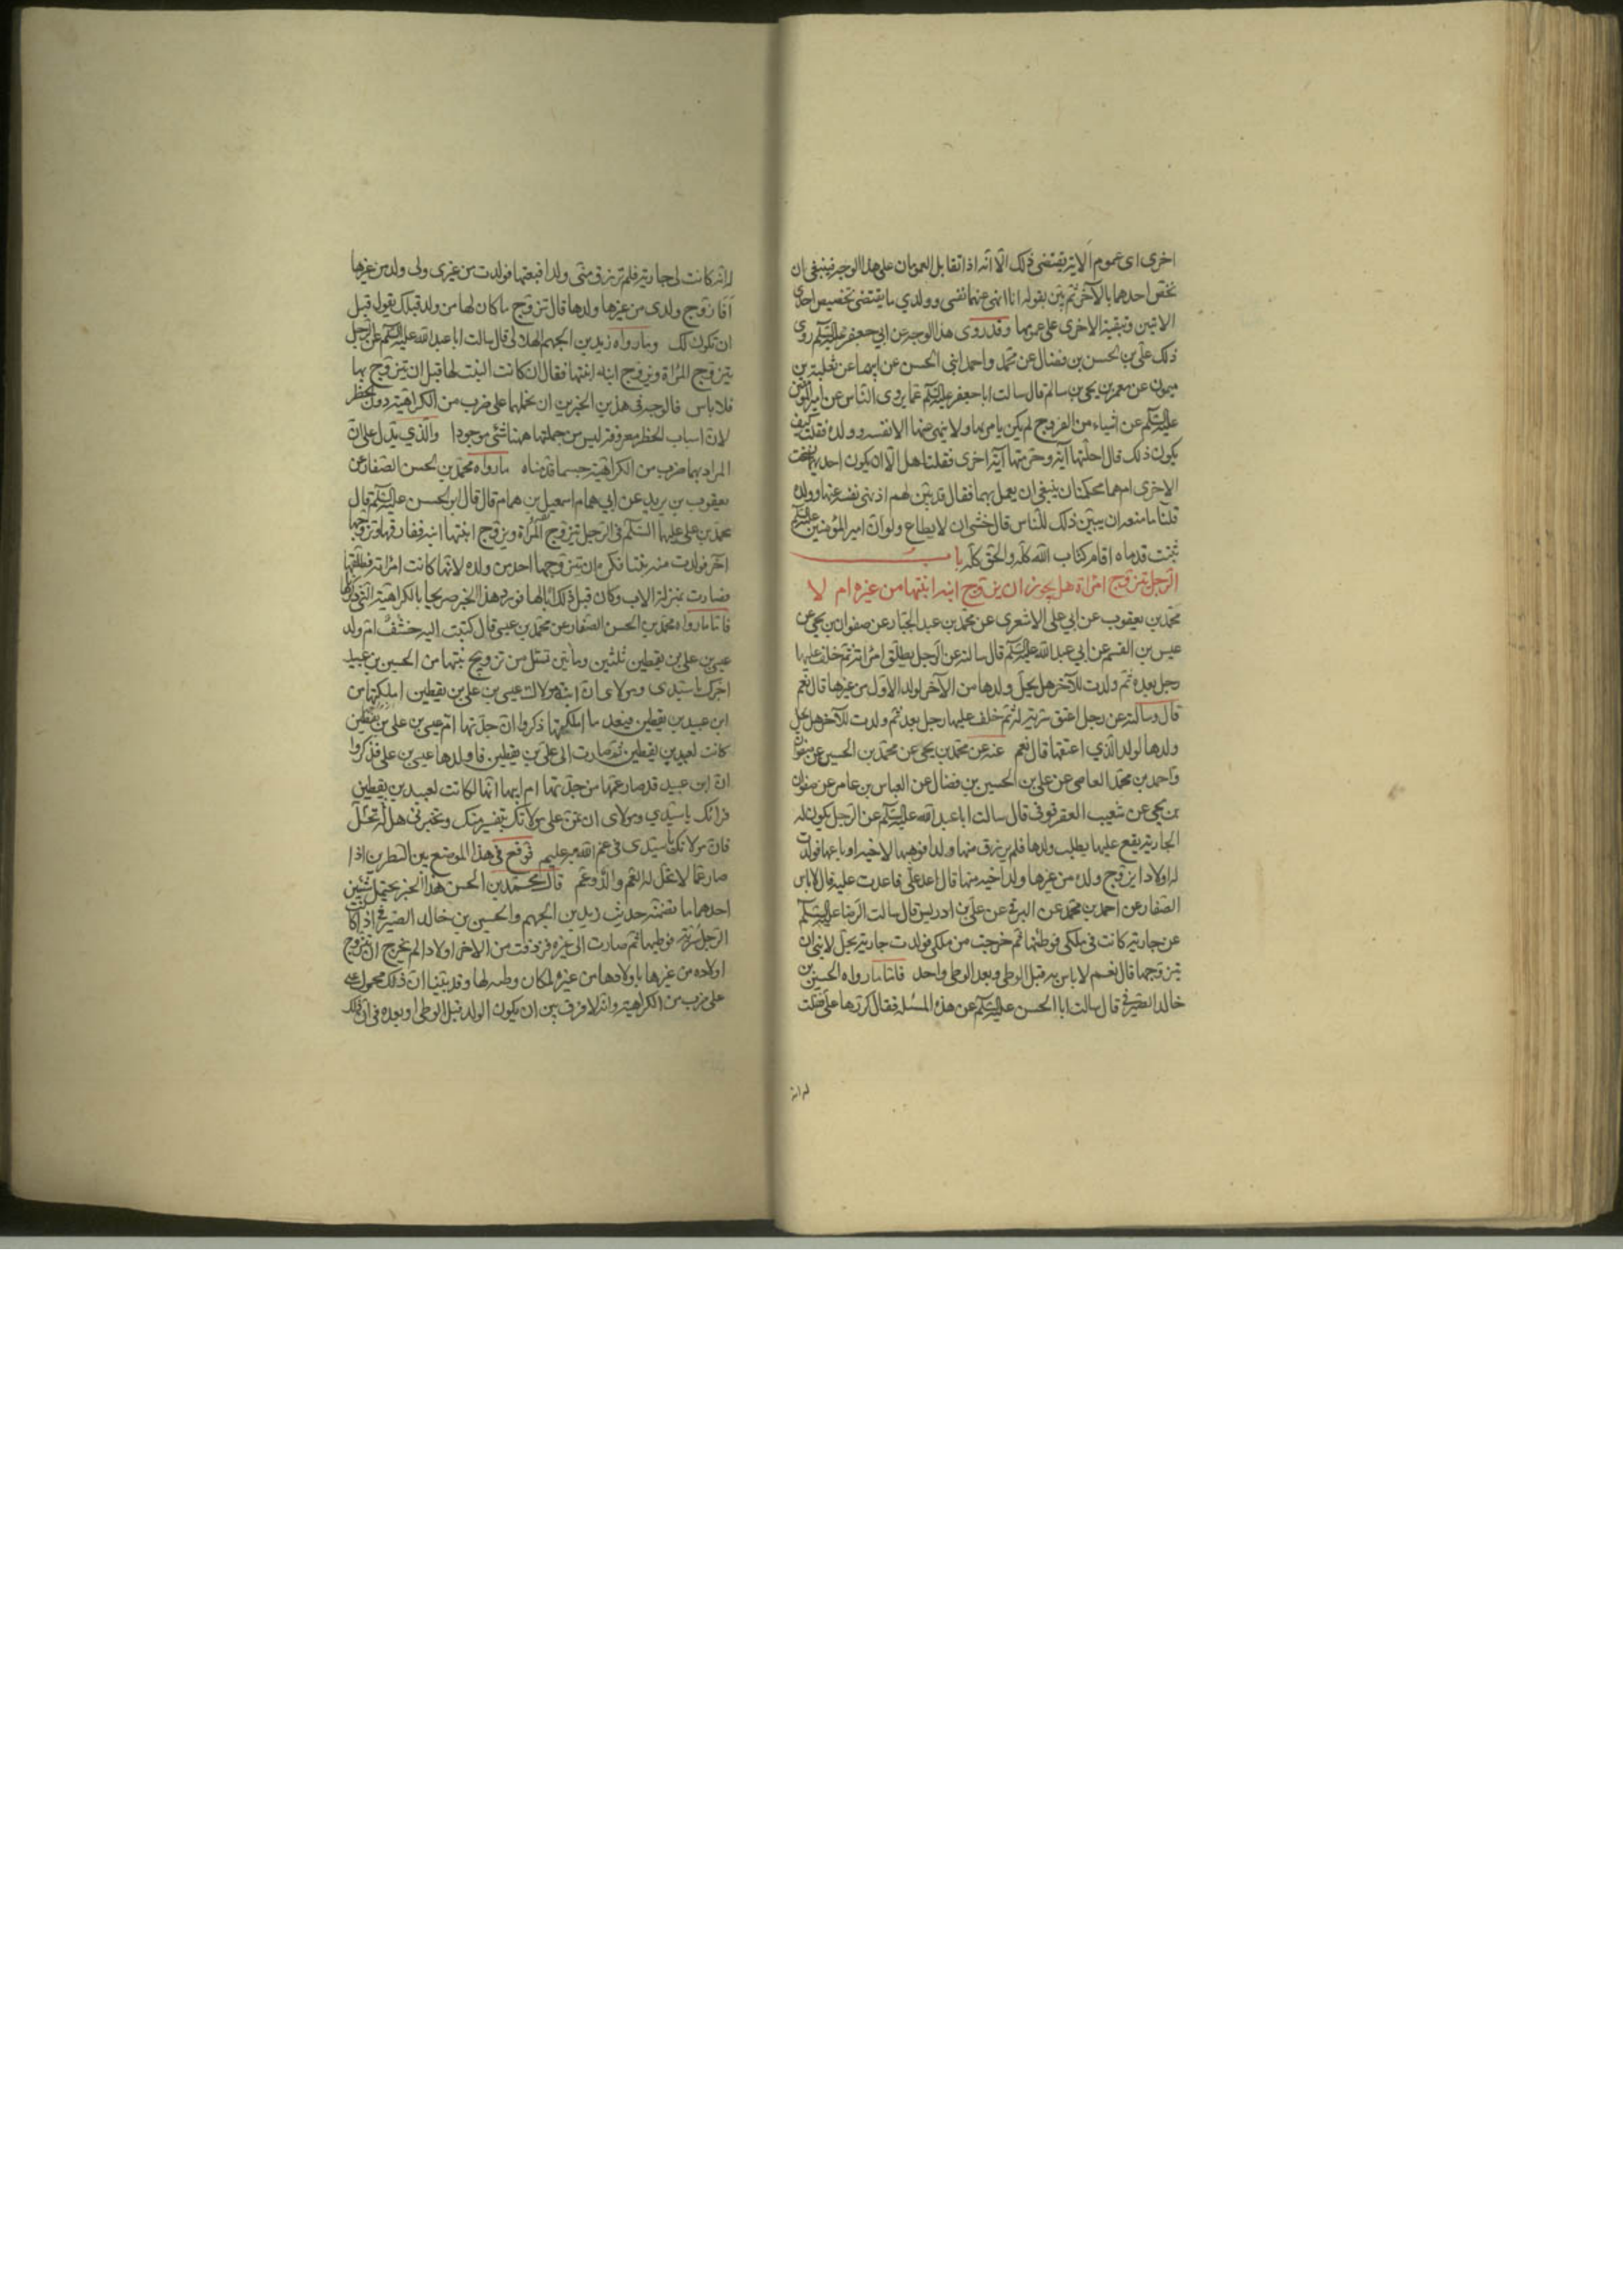 اخرى اى عموم الآية يقتضى ذلك الّا انّه اذا تقابل العمومان على هذا الوجه فينبغى ان
نخصّ احدهما بالآخر ثم بيّن بقوله انا انهى عنهما نفسى وولدي ما يقتضى تخصيص احدى
الايتين وتبقية الاخرى على عمومها وقد روى هذا الوجه عن ابي جعفر عليه السّلم روى
ذلك علّى بن الحسن بن فضال عن محمّد واحمد ابنى الحسن عن ابيهما عن ثعلبة بن
ميمون عن معمر بن يحيى بن سالم قال سالت ابا جعفر عليه السّلم عما يروى النّاس عن امير المؤمنين
عليه السّلم عن اشياء من الفروج لم يكن يامر بها ولا ينهى عنها الا نفسه وولده فقلت كيف
يكون ذلك قال احلّتها آية وحرّمتها آية اخرى فقلنا هل الّا ان يكون احديهما نسخت
الاخرى ام هما محكمتان ينبغى ان يعمل بهما فقال قد بيّن لهم اذ نهى نفسه عنها وولده
قلنا ما منعه ان يبيّن ذلك للنّاس قال خشى ان لا يطاع ولو انّ امير المؤمنين عليه السّلم
ثبتت قدماه اقام كتاب الله كلّه والحق كلّه باب
الرّجل يتزوّج امراة هل يجوز ان يزوّج ابنه ابنتها من غيره ام لا
محمّد بن يعقوب عن ابي على الاشعرى عن محمّد بن عبد الجبّار عن صفوان بن يحيى عن
عيص بن القسم عن ابي عبد الله عليه السّلم قال سالته عن الرّجل يطلّق امراته ثمّ خلف عليها
رجل بعده ثمّ ولدت للآخر هل يحلّ ولدها من الآخر لولد الاوّل من غيرها قال نعم
قال وسالته عن رجل اعتق سرّية له ثمّ خلف عليها رجل بعده ثم ولدت للآخر هل يحلّ
ولدها لولد الّذي اعتقها قال نعم عنه عن محمّد بن يحيى عن محمّد بن الحسين عن صفوان
واحمد بن محمّد العاصمى عن على بن الحسين بن فضال عن العباس بن عامر عن صفوان
بن يحيى عن شعيب العقرقوفى قال سالت ابا عبد الله عليه السّلم عن الرّجل يكون له
الجارية يقع عليها يطلب ولدها فلم يرزق منها ولدا فوهبها لاخيه او باعها فولدت
له اولادا ايزوّج ولده من غيرها ولد اخيه منها قال اعد علّى فاعدت عليه قال لا باس
الصّفار عن احمد بن محمّد عن البرقى عن على بن ادريس قال سالت الرّضا عليه السّلم
عن جارية كانت فى ملكى فوطئتها ثم خرجت من ملكى فولدت جارية يحلّ لابنى ان
يتزوّجها قال نعم لا باس به قبل الوطى وبعد الوطى واحد فامّا ما رواه الحسين بن
خالد الصّيرفى قال سالت ابا الحسن عليه السّلم عن هذه المسئلة فقال كرّرها علّى قلت
له انّه
له انّه كانت لى جارية فلم ترزق منّى ولدا فبعتها فولدت من غيرى ولى ولد من غيرها
افازوّج ولدى من غيرها ولدها قال تزوّج ما كان لها من ولد قبلك يقول قبل
ان تكون لك وما رواه زيد بن الجهم الهلالى قال سالت ابا عبد الله عليه السّلم عن الرّجل
يتزوّج المراة ويزوّج ابنه ابنتها فقال ان كانت البنت لها قبل ان يتزوّج بها
فلا باس فالوجه فى هذين الخبرين ان نحملهما على ضرب من الكراهية دون الحظر
لانّ اسباب الحظر معروفة ليس من جملتها ههنا شئ موجودا والّذي يدل على انّ
المراد بهما ضرب من الكراهية حسبما قدّمناه ما رواه محمّد بن الحسن الصّفار عن
يعقوب بن يزيد عن ابي همام اسمعيل بن همام قال قال ابو الحسن عليه السّلم قال
محمّد بن على عليهما السّلم فى الرّجل يتزوّج المراة ويزوّج ابنتها ابنه ففارقها وتزوّجها
آخر فولدت منه بنتا فكره ان يتزوّجها احد من ولده لانّها كانت امراته فطلّقها
فصارت بمنزلة الاب وكان قبل ذلك ابا لها فورد هذا الخبر صريحا بالكراهية الّتى ذكرناها
فامّا ما رواه محمّد بن الحسن الصّفار عن محمّد بن عيسى قال كتبت اليه خشف امّ ولد
عيسى بن على بن يقطين ثلثين ومأتين تسئل عن تزويج بنتها من الحسين بن عبيد
اخبرك يا سيّدى ومولاى انّ ابنة مولاك عيسى بن على بن يقطين املكتها من
ابن عبيد بن يقطين فبعد ما املكتها ذكروا انّ جدّتها امّ عيسى بن على بن يقطين
كانت لعبيد بن يقطين ثمّ صارت الى على بن يقطين فاولدها عيسى بن على فذكروا
انّ ابن عبيد قد صار عمّها من قبل جدّتها ام ابيها انّها كانت لعبيد بن يقطين
فرايك يا سيّدي ومولاى ان تمنّ على مولاتك بتفسير منك وتخبرنى هل له تحلّ
فانّ مولاتك يا سيّدى فى غمّ الله به عليم فوقّع فى هذا الموضع بين السّطرين اذا
صار عمّا لا تحلّ له العمّ والد وعمّ قال محمّد بن الحسن هذا الخبر يحتمل شيئين
احدهما ما تضمّنه حديث زيد بن الجهم والحسين بن خالد الصّيرفى اذا كانت
الرّجل سرّية فوطيها ثمّ صارت الى غيره فرزقت من الاخر اولادا لم يخرج ان تزوّج
اولاده من غيرها باولادها من غيره لمكان وطيه لها وقد بيّنا انّ ذلك محمول
على ضرب من الكراهية وانّه لا فرق بين ان يكون الولد قبل الوطى او بعده فى انّ ذلك